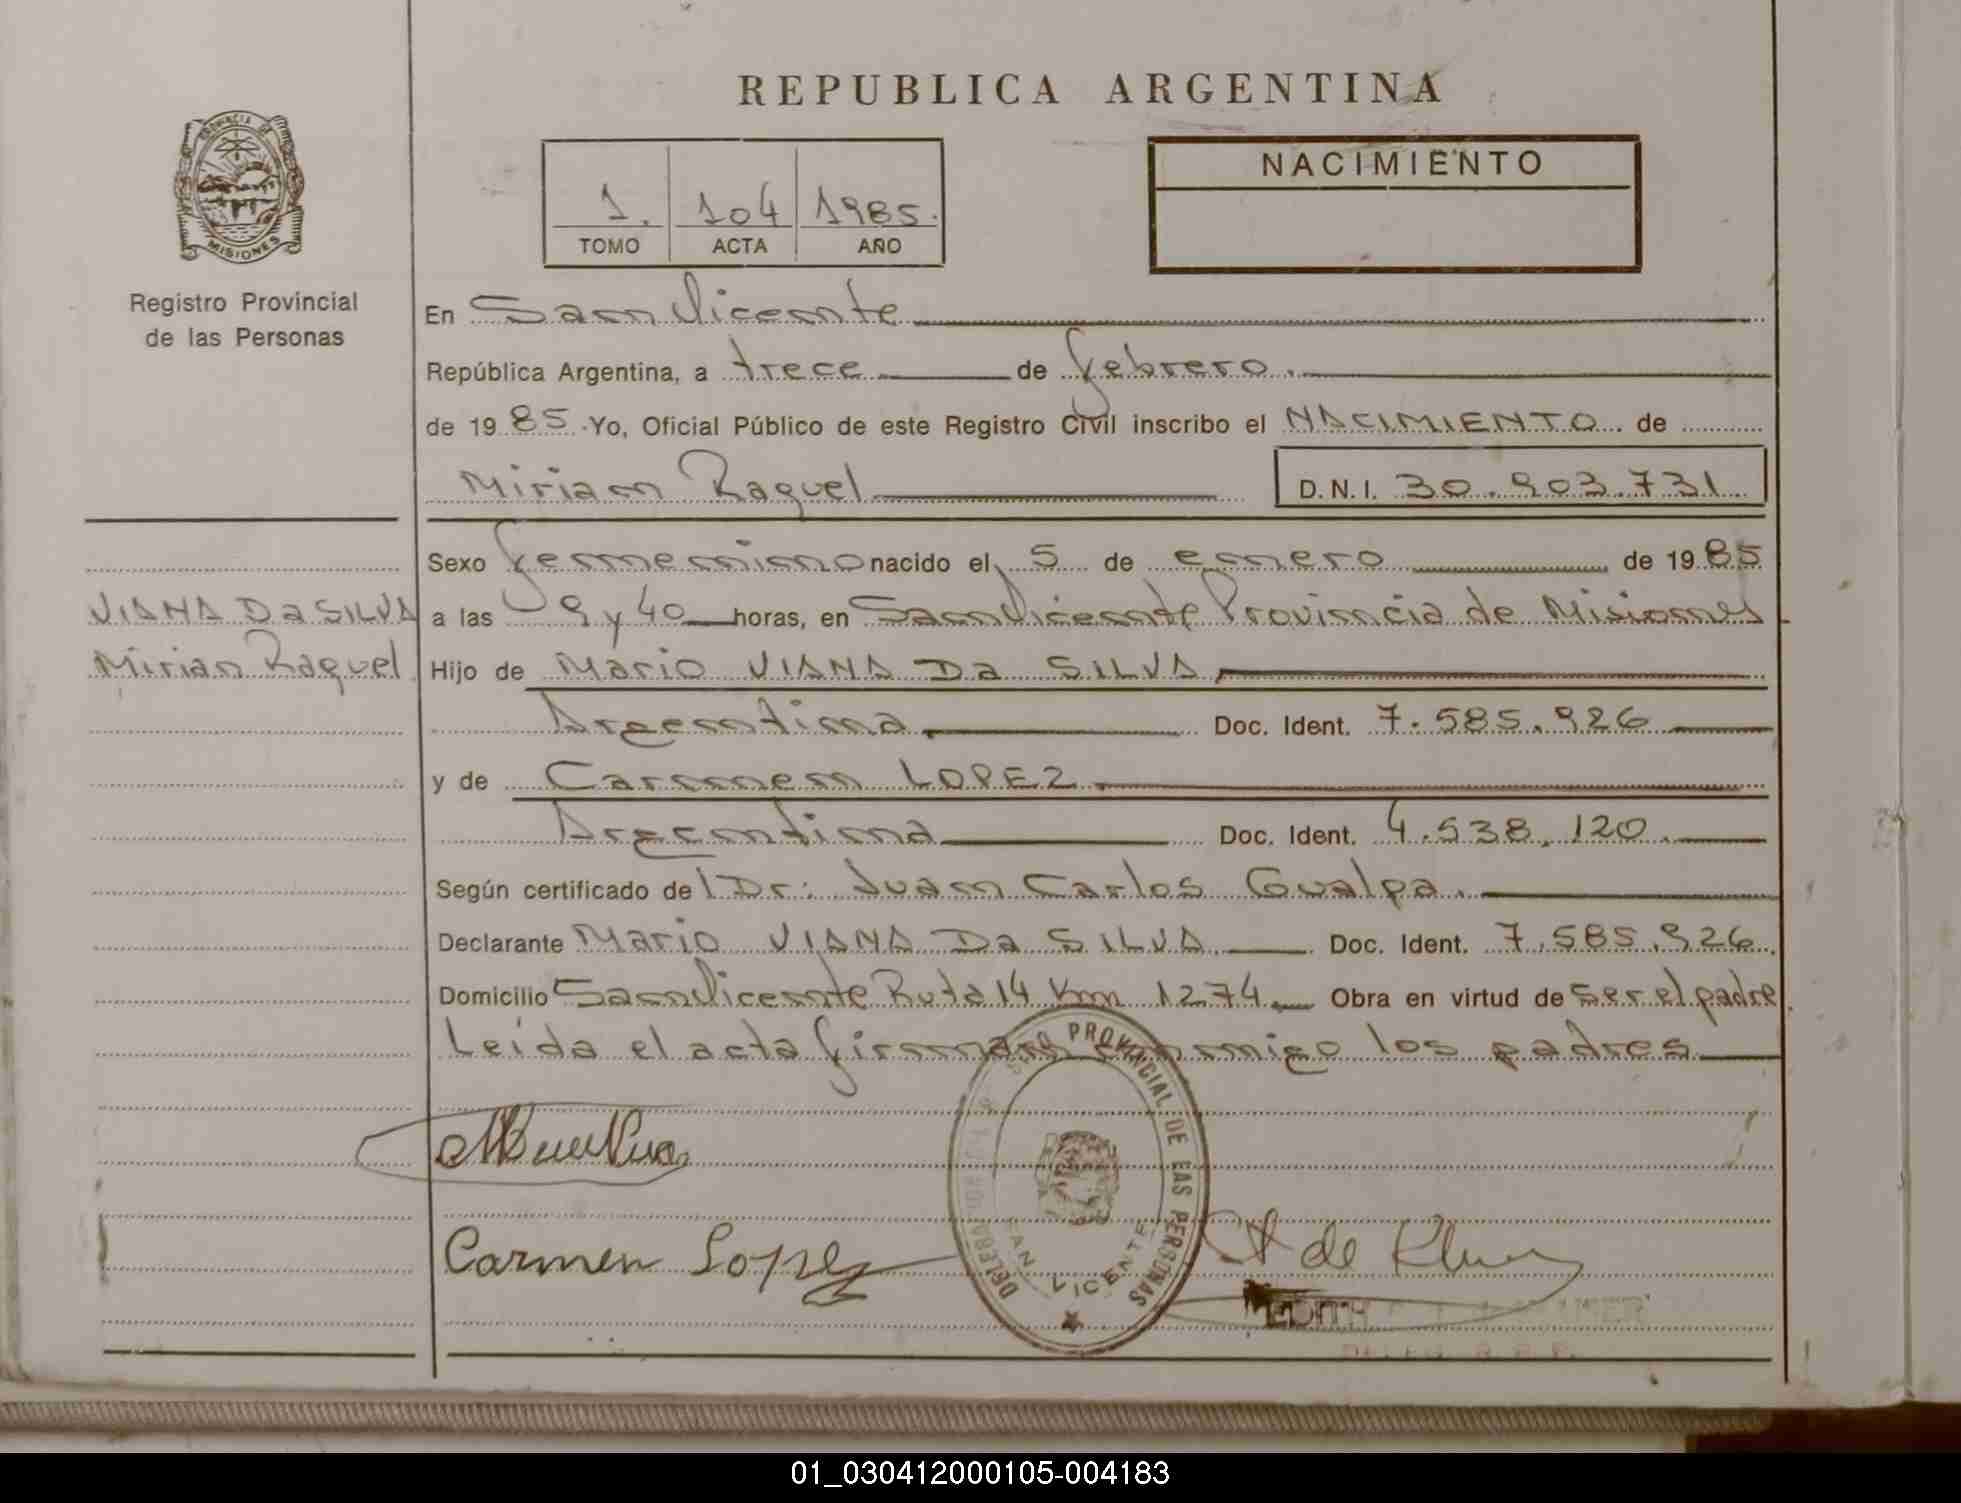 REPUBLICA ARGENTINA
PROVINCIA DE
MISIONES
Registro Provincial
de las Personas
1. 104 1985.
TOMO ACTA AÑO
NACIMIENTO
En San Vicente
República Argentina, a trece de febrero.
de 1985 Yo, Oficial Público de este Registro Civil inscribo el NACIMIENTO de
Miriam Raquel D.N.I. 30.903.731
Sexo femenino nacido el 5 de enero de 1985
VIANA Da SILVA
Mirian Raquel
a las 9 y 40 horas, en San Vicente Provincia de Misiones
Hijo de Mario VIANA Da SILVA
Argentina Doc. Ident. 7.585.926
y de Carmen LOPEZ
Argentina Doc. Ident. 4.538.120.
Según certificado de Dr: Juan Carlos Gualpa.
Declarante Mario VIANA Da SILVA. Doc. Ident. 7.585.926.
Domicilio San Vicente Ruta 14 Km 1274 Obra en virtud de ser el padre
Leida el acta firman conmigo los padres
PROVINCIAL DE LAS PERSONAS
SAN VICENTE
Carmen Lopez
EDITH
01_030412000105-004183